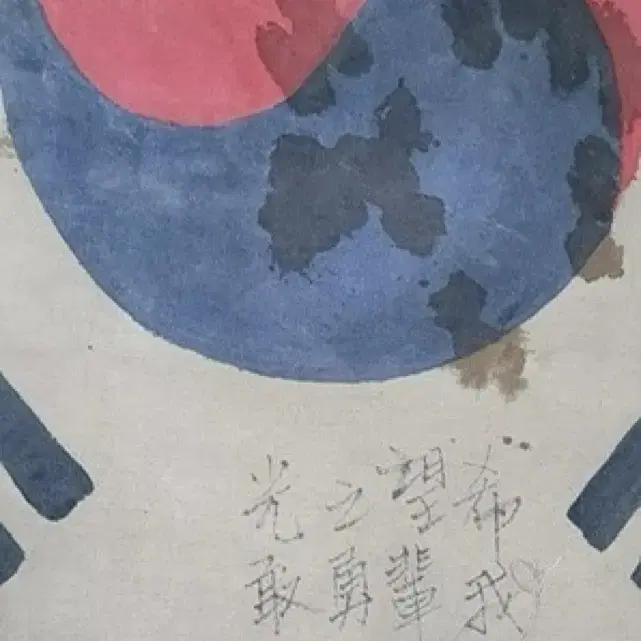 希望之光
我輩勇敢